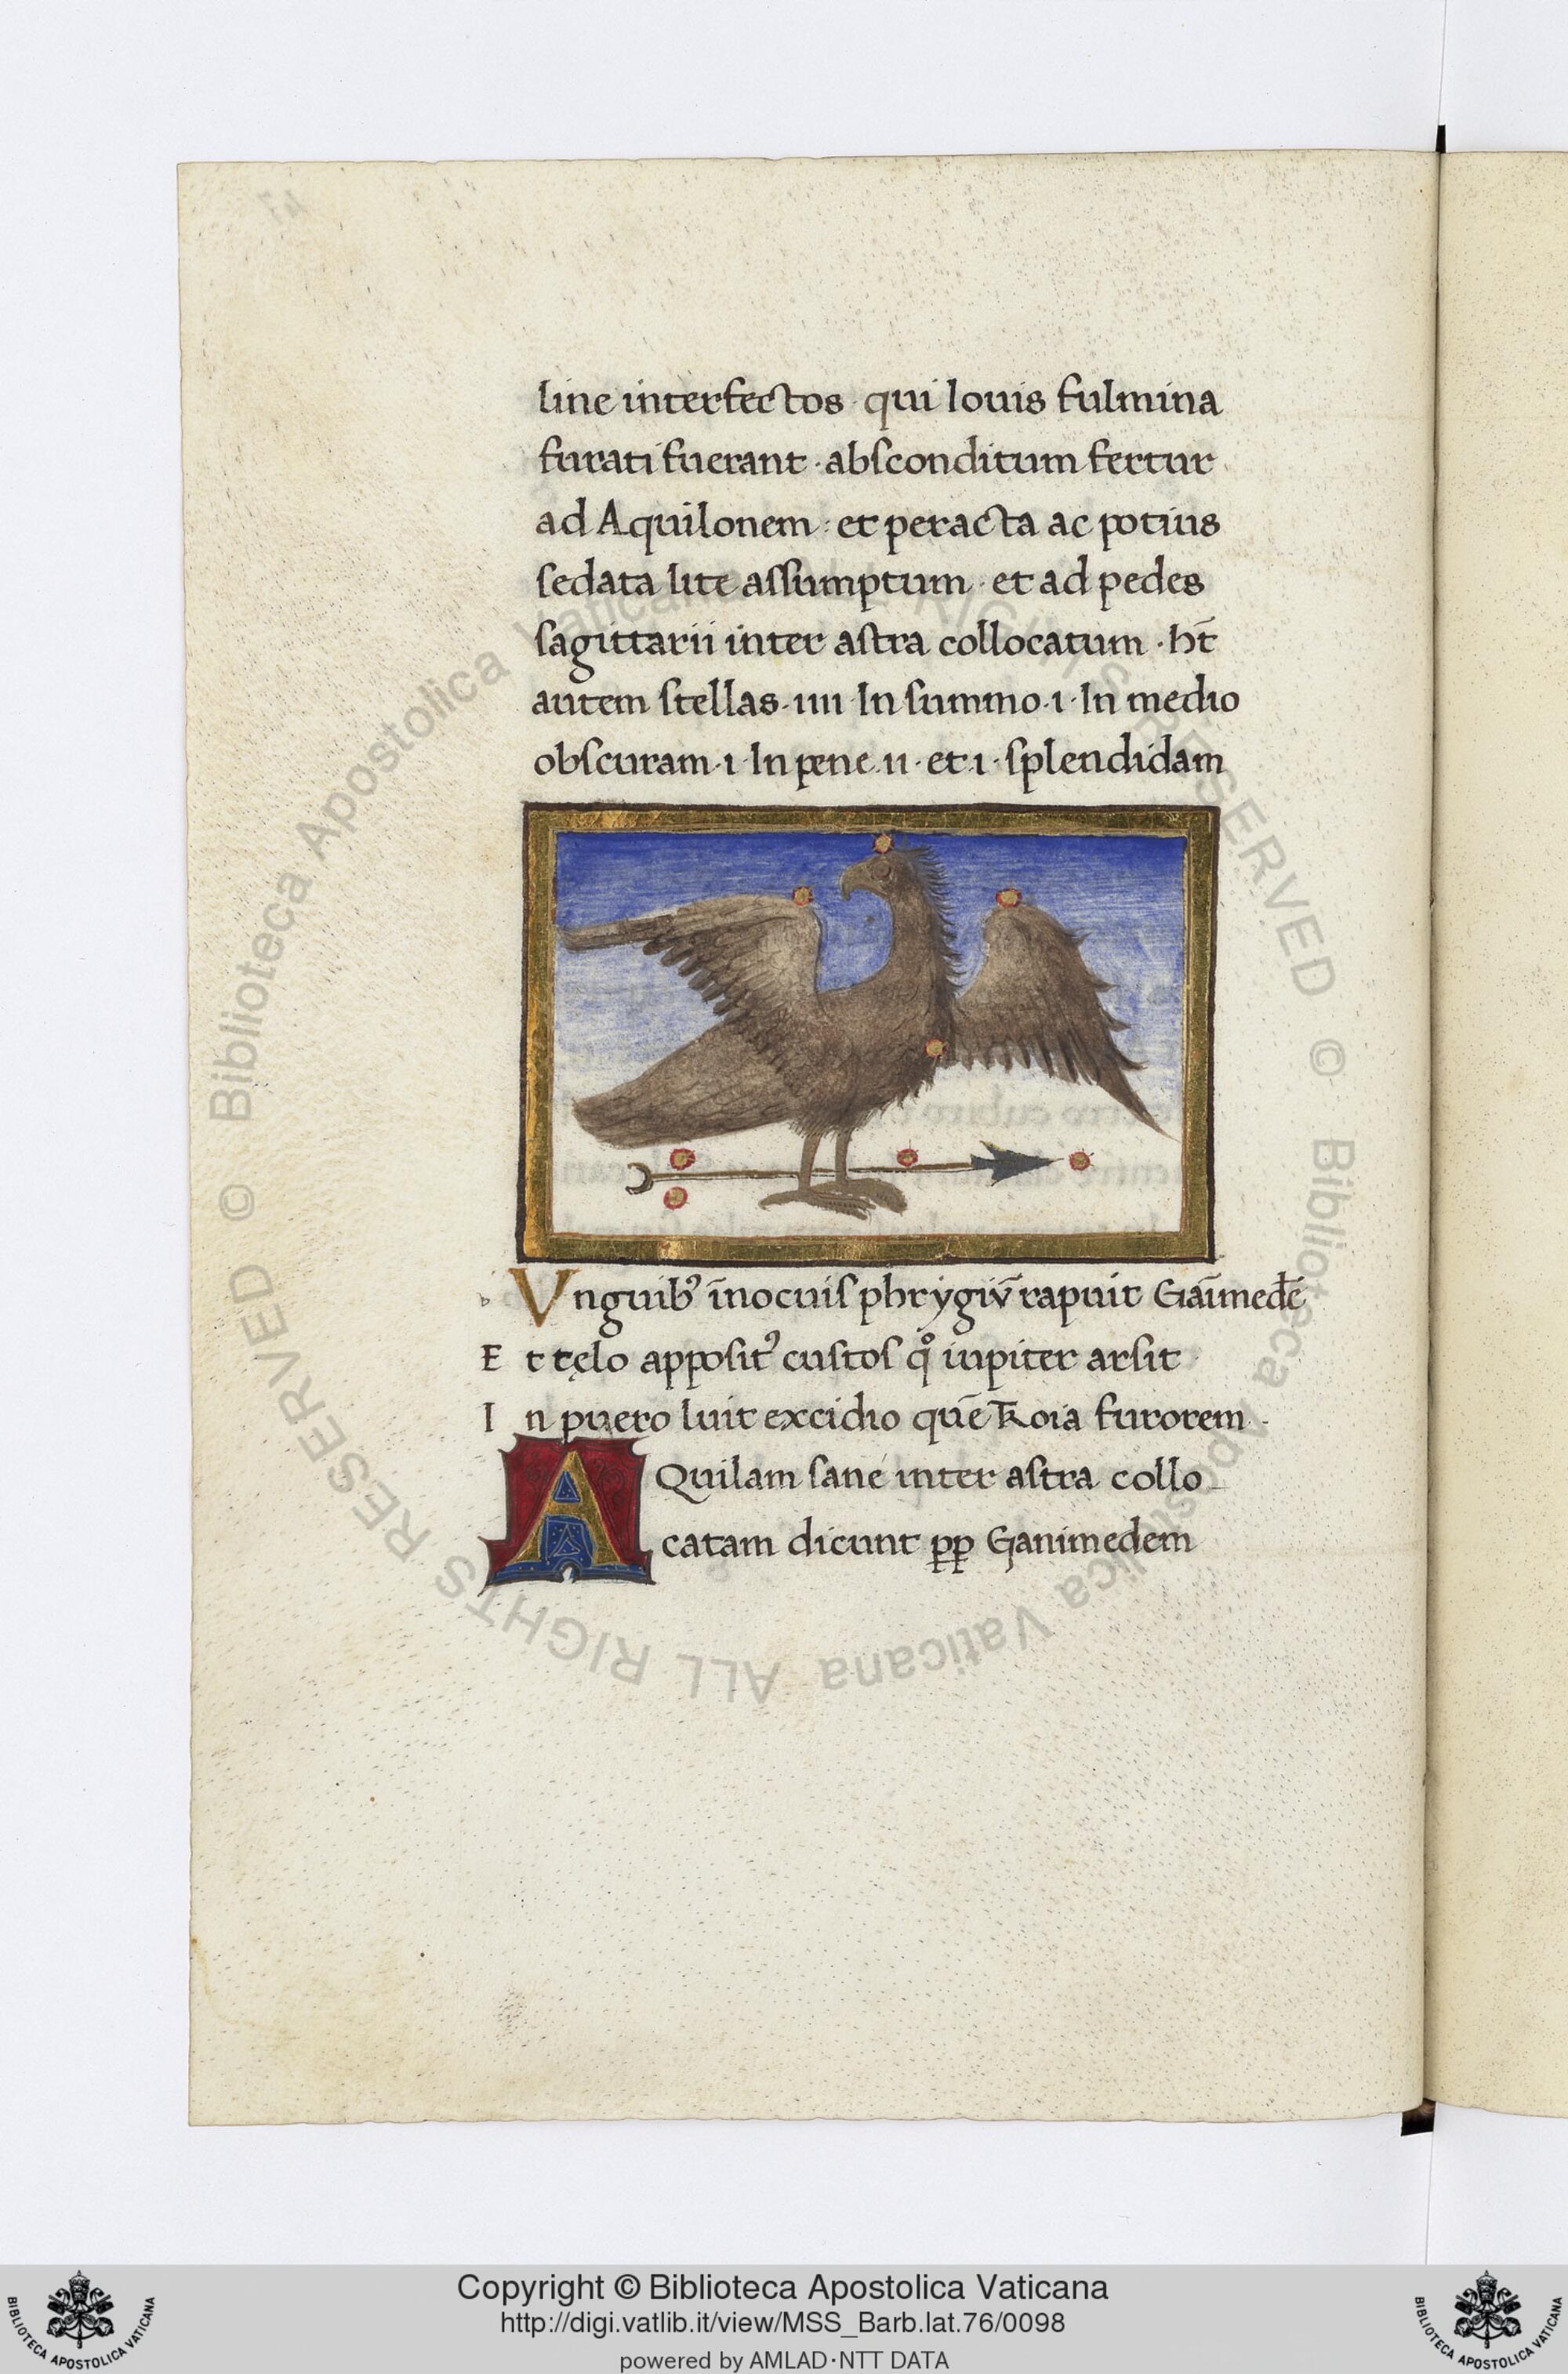 line interfectos · qui Iouis fulmina
furati fuerant · absconditum fertur
ad Aquilonem : et peracta ac potius
sedata lite assumptum · et ad pedes
sagittarii inter astra collocatum · ht̄
autem stellas · iiii · In summo · i · In medio
obscuram · i · In pene · ii · et · i · splendidam
Vnguibꝰ īnocuis phrygiv̄ rapuit Gaīmedē
Et tęlo appositꝰ custos qͦ iupiter arsit
In puero luit excidio quē troia furorem
AQuilam sane inter astra collo
catam dicunt pp Ganimedem
© Biblioteca Apostolica Vaticana ALL RIGHTS RESERVED © Biblioteca Apostolica Vaticana ALL RIGHTS RESERVED
BIBLIOTECA APOSTOLICA VATICANA
Copyright © Biblioteca Apostolica Vaticana
http://digi.vatlib.it/view/MSS_Barb.lat.76/0098
powered by AMLAD·NTT DATA
BIBLIOTECA APOSTOLICA VATICANA